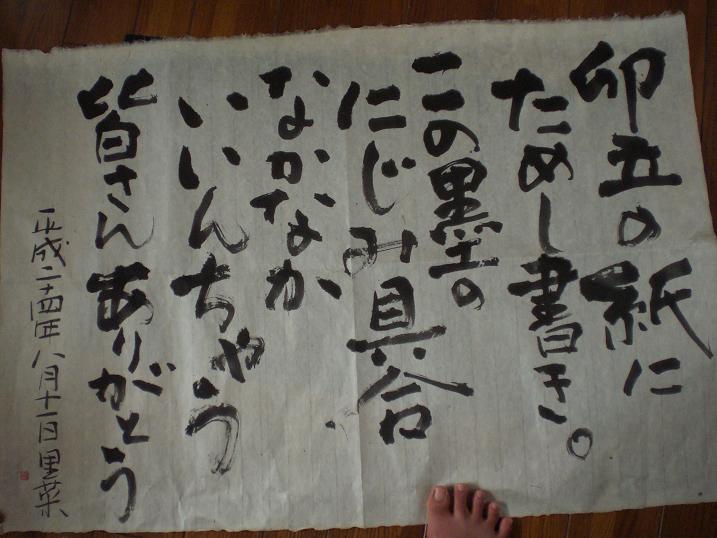 卯五の紙に
ためし書き。
この墨の
にじみ具合
なかなか
いいんちゃう
皆さんありがとう
平成二十四年八月十一日里菜